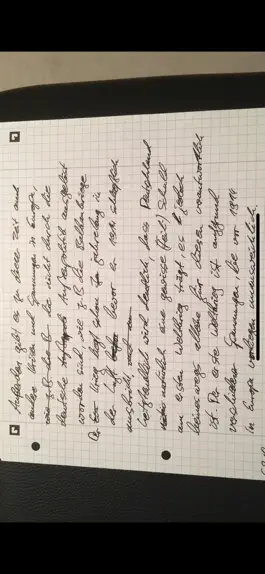 Außerdem gibt es zu dieser Zeit auch
andere Krisen und Spannungen in Europa,
die nicht durch die
deutsche Außenpolitik ausgelöst
worden sind, wie z.B die Balkankriege.
Der Krieg liegt schon im
der Luft bevor er 1914 schließlich
ausbrach.
Letztendlich wird deutlich, dass Deutschland
natürlich eine gewisse (Teil) Schuld
am ersten Weltkrieg trägt, es jedoch
keineswegs alleine für diesen verantwortlich
ist. Der erste Weltkrieg ist aufgrund
verschiedener Spannungen, die vor 1914
in Europa vorlagen unausweichlich.